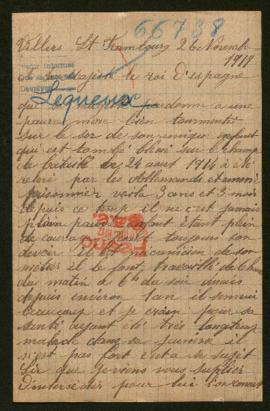 66738
Villers St Frambourg 26 Novembre
1917
Majesté le roi D'espagne
Lequeux
que pardonne a une
pauvre mère bien tourmentée
sur le sor de son unique enfant
qui est tombé blessé sur le champ
de bataille le 24 aout 1914 a été
relevé par les Allemands et emmené
prisonnier voila 3 ans et 3 mois
depuis ce temp il ne c'est jamais
plain enfant étant plein
de courage toujours son
devoir il mecanicien de son
métier il le font travaillé de 6 heures
du matin a 6h du soir mais
depuis environ 1 an il s'ennui
beaucoup et je crain pour sa
santé ayant été très longtemps
malade dans sa jeunesse il
n'est pas fort c'est a ce sujet
Sir que je viens vous supplier
D'interceder pour lui